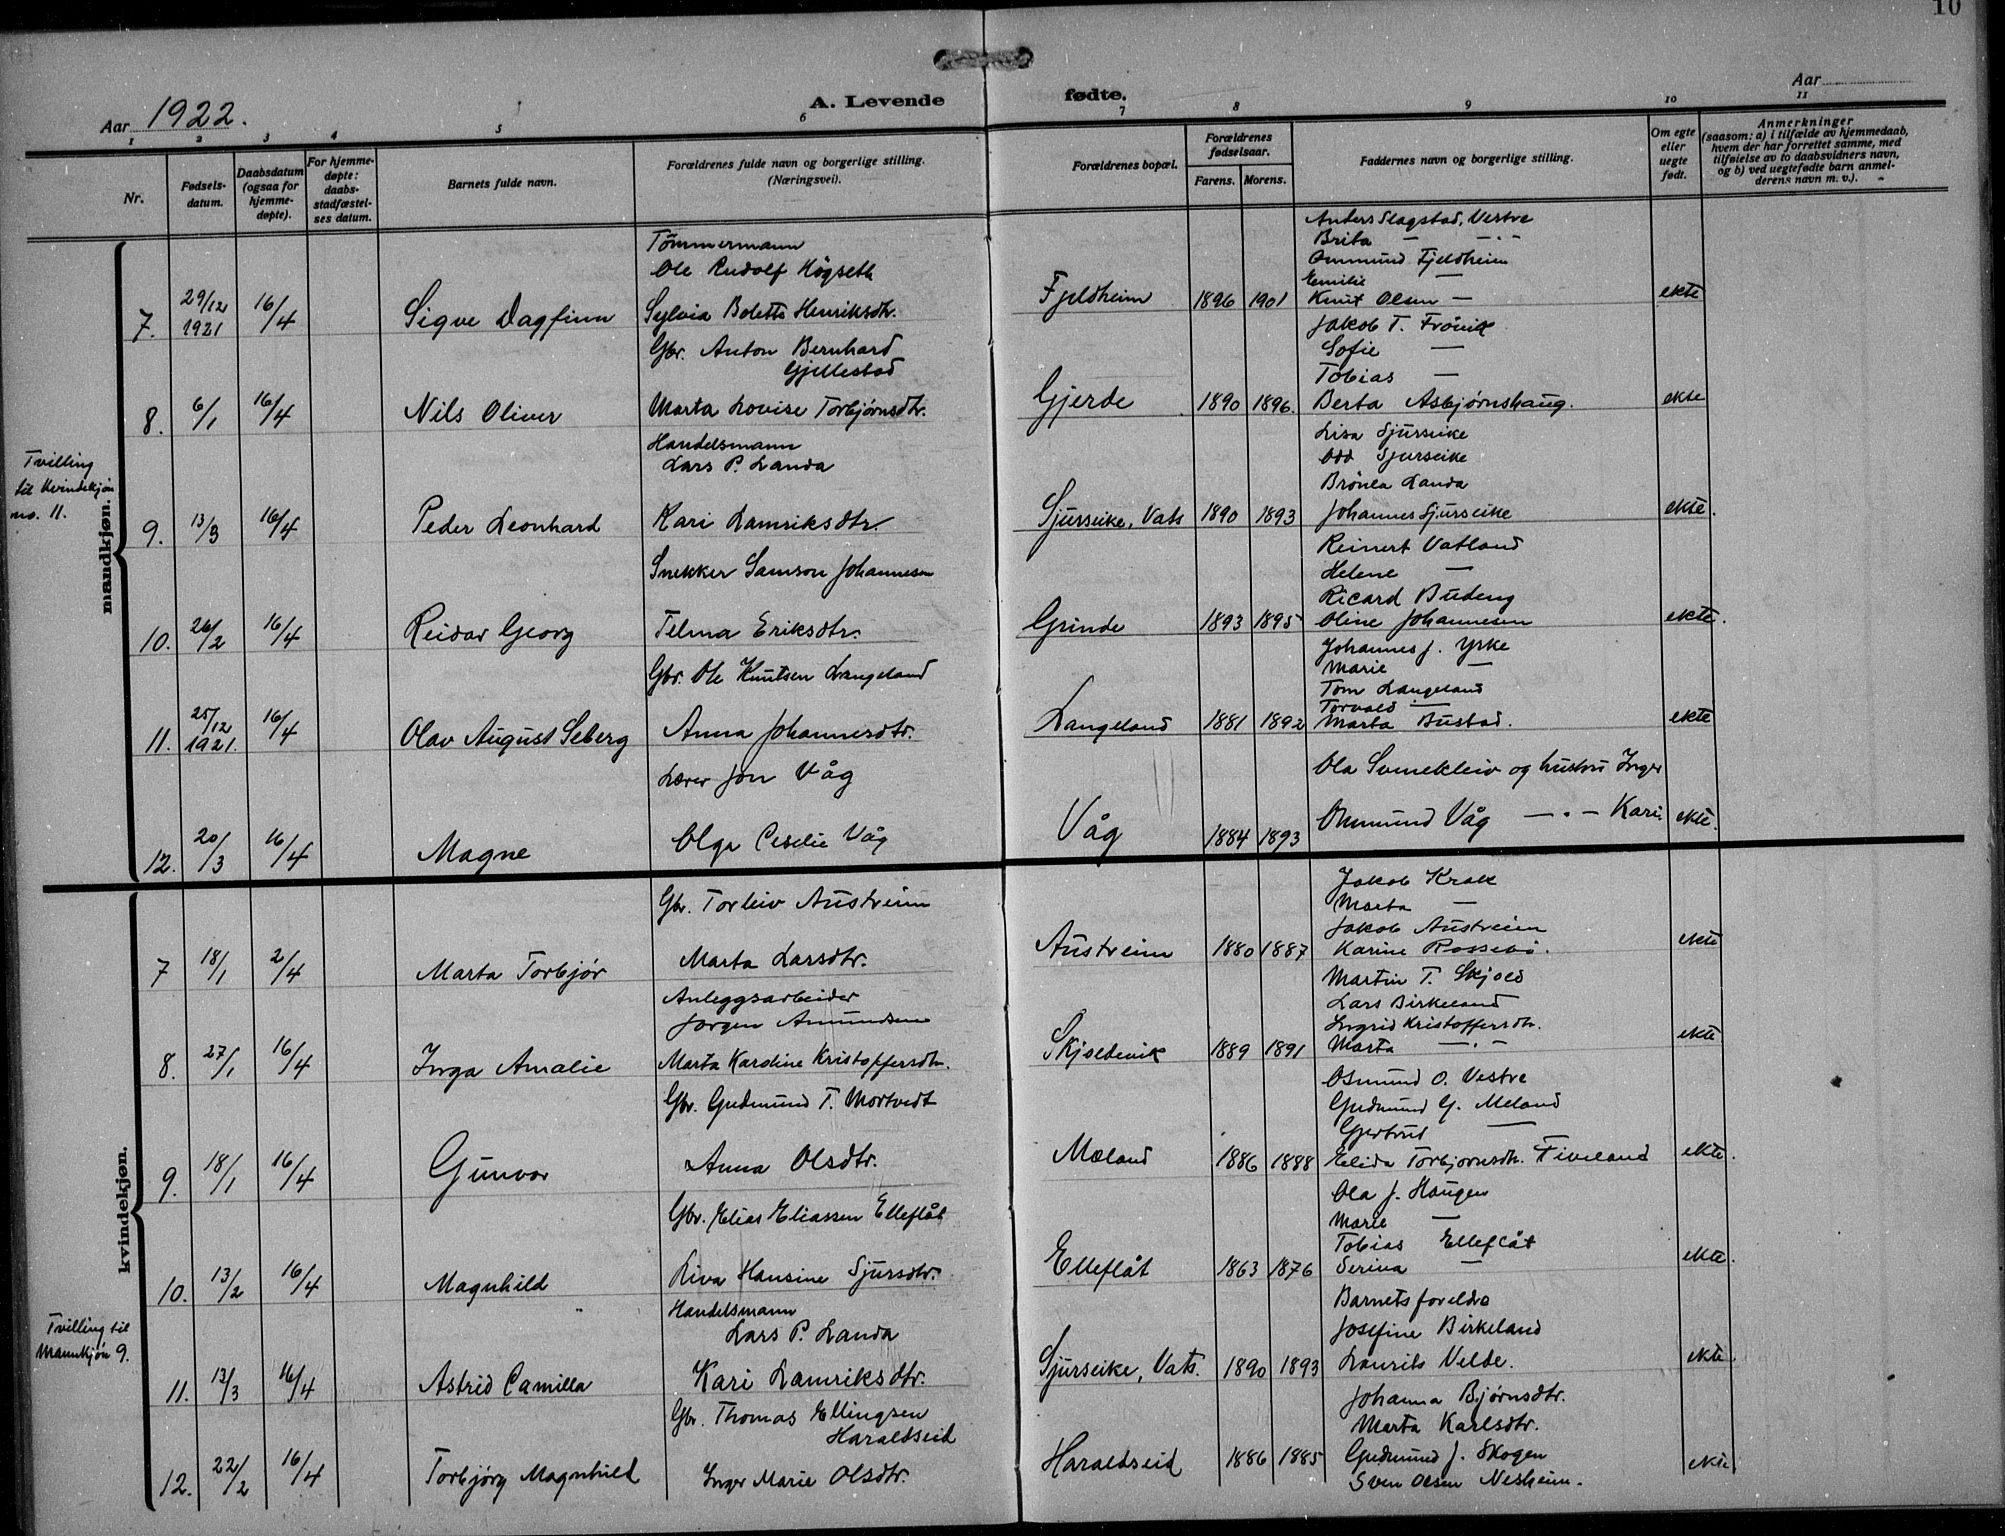 10
Aar 1922.
A. Levende
fødte.
Aar
1 2 3 4 5 6 7 8 9 10 11
Nr.
Fødsels-
datum.
Daabsdatum
(ogsaa for
hjemme-
døpte).
For hjemme-
døpte:
daabs-
stadfæstel-
ses datum.
Barnets fulde navn.
Forældrenes fulde navn og borgerlige stilling.
(Næringsvei).
Forældrenes bopæl.
Forældrenes
fødselsaar.
Farens. Morens.
Faddernes navn og borgerlige stilling.
Om egte
eller
uegte
født.
Anmerkninger
(saasom: a) i tilfælde av hjemmedaab,
hvem der har forrettet samme, med
tilføielse av to daabsvidners navn,
og b) ved uegtefødte barn anmel-
derens navn m. v.).
mandkjøn.
7. 29/12 1921 16/4 Sigve Dagfinn
Tømmermann
Ole Rudolf Høgseth
Sylvia Bolette Henriksdtr.
Fjeldheim 1896 1901
Anders Slagstad, Vestre
Brita — -"-
Ommund Fjeldheim
Emilie —
Knut Olsen —
ekte
8. 6/1 16/4 Nils Oliver
Gbr. Anton Bernhard
Gjillestad
Marta Lovise Torbjørnsdtr.
Gjerde 1890 1896
Jakob T. Frövik
Sofie —
Tobias —
Berta Asbjørnshaug.
ekte
Tvilling
til Kvindekjøn
no. 11.
9. 13/3 16/4 Peder Leonhard
Handelsmann
Lars P. Landa
Kari Lamriksdtr.
Sjurseike, Vats 1890 1893
Lisa Sjurseike
Odd Sjurseike
Brönla Landa
Johannes Sjurseike
ekte.
10. 26/2 16/4 Reidar Georg
Snekker Samson Johannesen
Telma Eriksdtr.
Grinde 1893 1895
Reinert Vatland
Helene —
Ricard Budeng
Oline Johannesen
ekte.
11. 25/12 1921. 16/4 Olav August Seberg
Gbr. Ole Knutsen Langeland
Anna Johannesdtr.
Langeland 1881 1892
Johannes J. Yrke
Marie —
Tom Langeland
Torvald —
Marta Bustad.
ekte
12. 20/3 16/4 Magne
Lærer Jon Våg
Olga Cecilie Våg
Våg 1884 1893
Ola Svinekleiv og hustru Inger
Ommund Våg — " — Kari.
ekte.
kvindekjøn.
7 18/1 2/4 Marta Torbjør
Gbr. Torleiv Austreim
Marta Larsdtr.
Austreim 1880 1887
Jakob Krak
Marta —
Jakob Austreim
Karine Rossebö.
ekte
8. 27/1 16/4 Inga Amalie
Anleggsarbeider
Jorgen Amundsen
Marta Kardine Kristoffersdtr.
Skjoldevik 1889 1891
Martin T. Skjold
Lars Birkeland
Ingrid Kristoffersdtr.
Marta — " -
ekte
9. 18/1 16/4 Gunvor
Gbr. Gudmund T. Mortvedt
Anna Olsdtr.
Mæland 1886 1888
Osmund O. Vestre
Gudmund G. Meland
Gjertrud —
Elida Torbjornsdtr. Fiveland
ekte.
10. 13/2 16/4 Magnhild
Gbr. Elias Eliassen Elleflåt
Liva Hansine Sjursdtr.
Elleflåt 1863 1876
Ola J. Haugen
Marie —
Tobias Elleflåt
Serina —
ekte.
Tvilling til
Mannkjön 9.
11. 13/3 16/4 Astrid Camilla
Handelsmann
Lars P. Landa
Kari Lamriksdtr.
Sjurseike, Vats. 1890 1893
Barnets foreldre
Josefine Birkeland
Laurits Velde.
ekte.
12. 22/2 16/4 Torbjørg Magnhild
Gbr. Thomas Ellingsen
Haraldseid
Inger Marie Olsdtr.
Haraldseid 1886 1885
Johanna Bjørnsdtr.
Marta Karlsdtr.
Gudmund J. Skogen
Sven Olsen Nesheim.
ekte